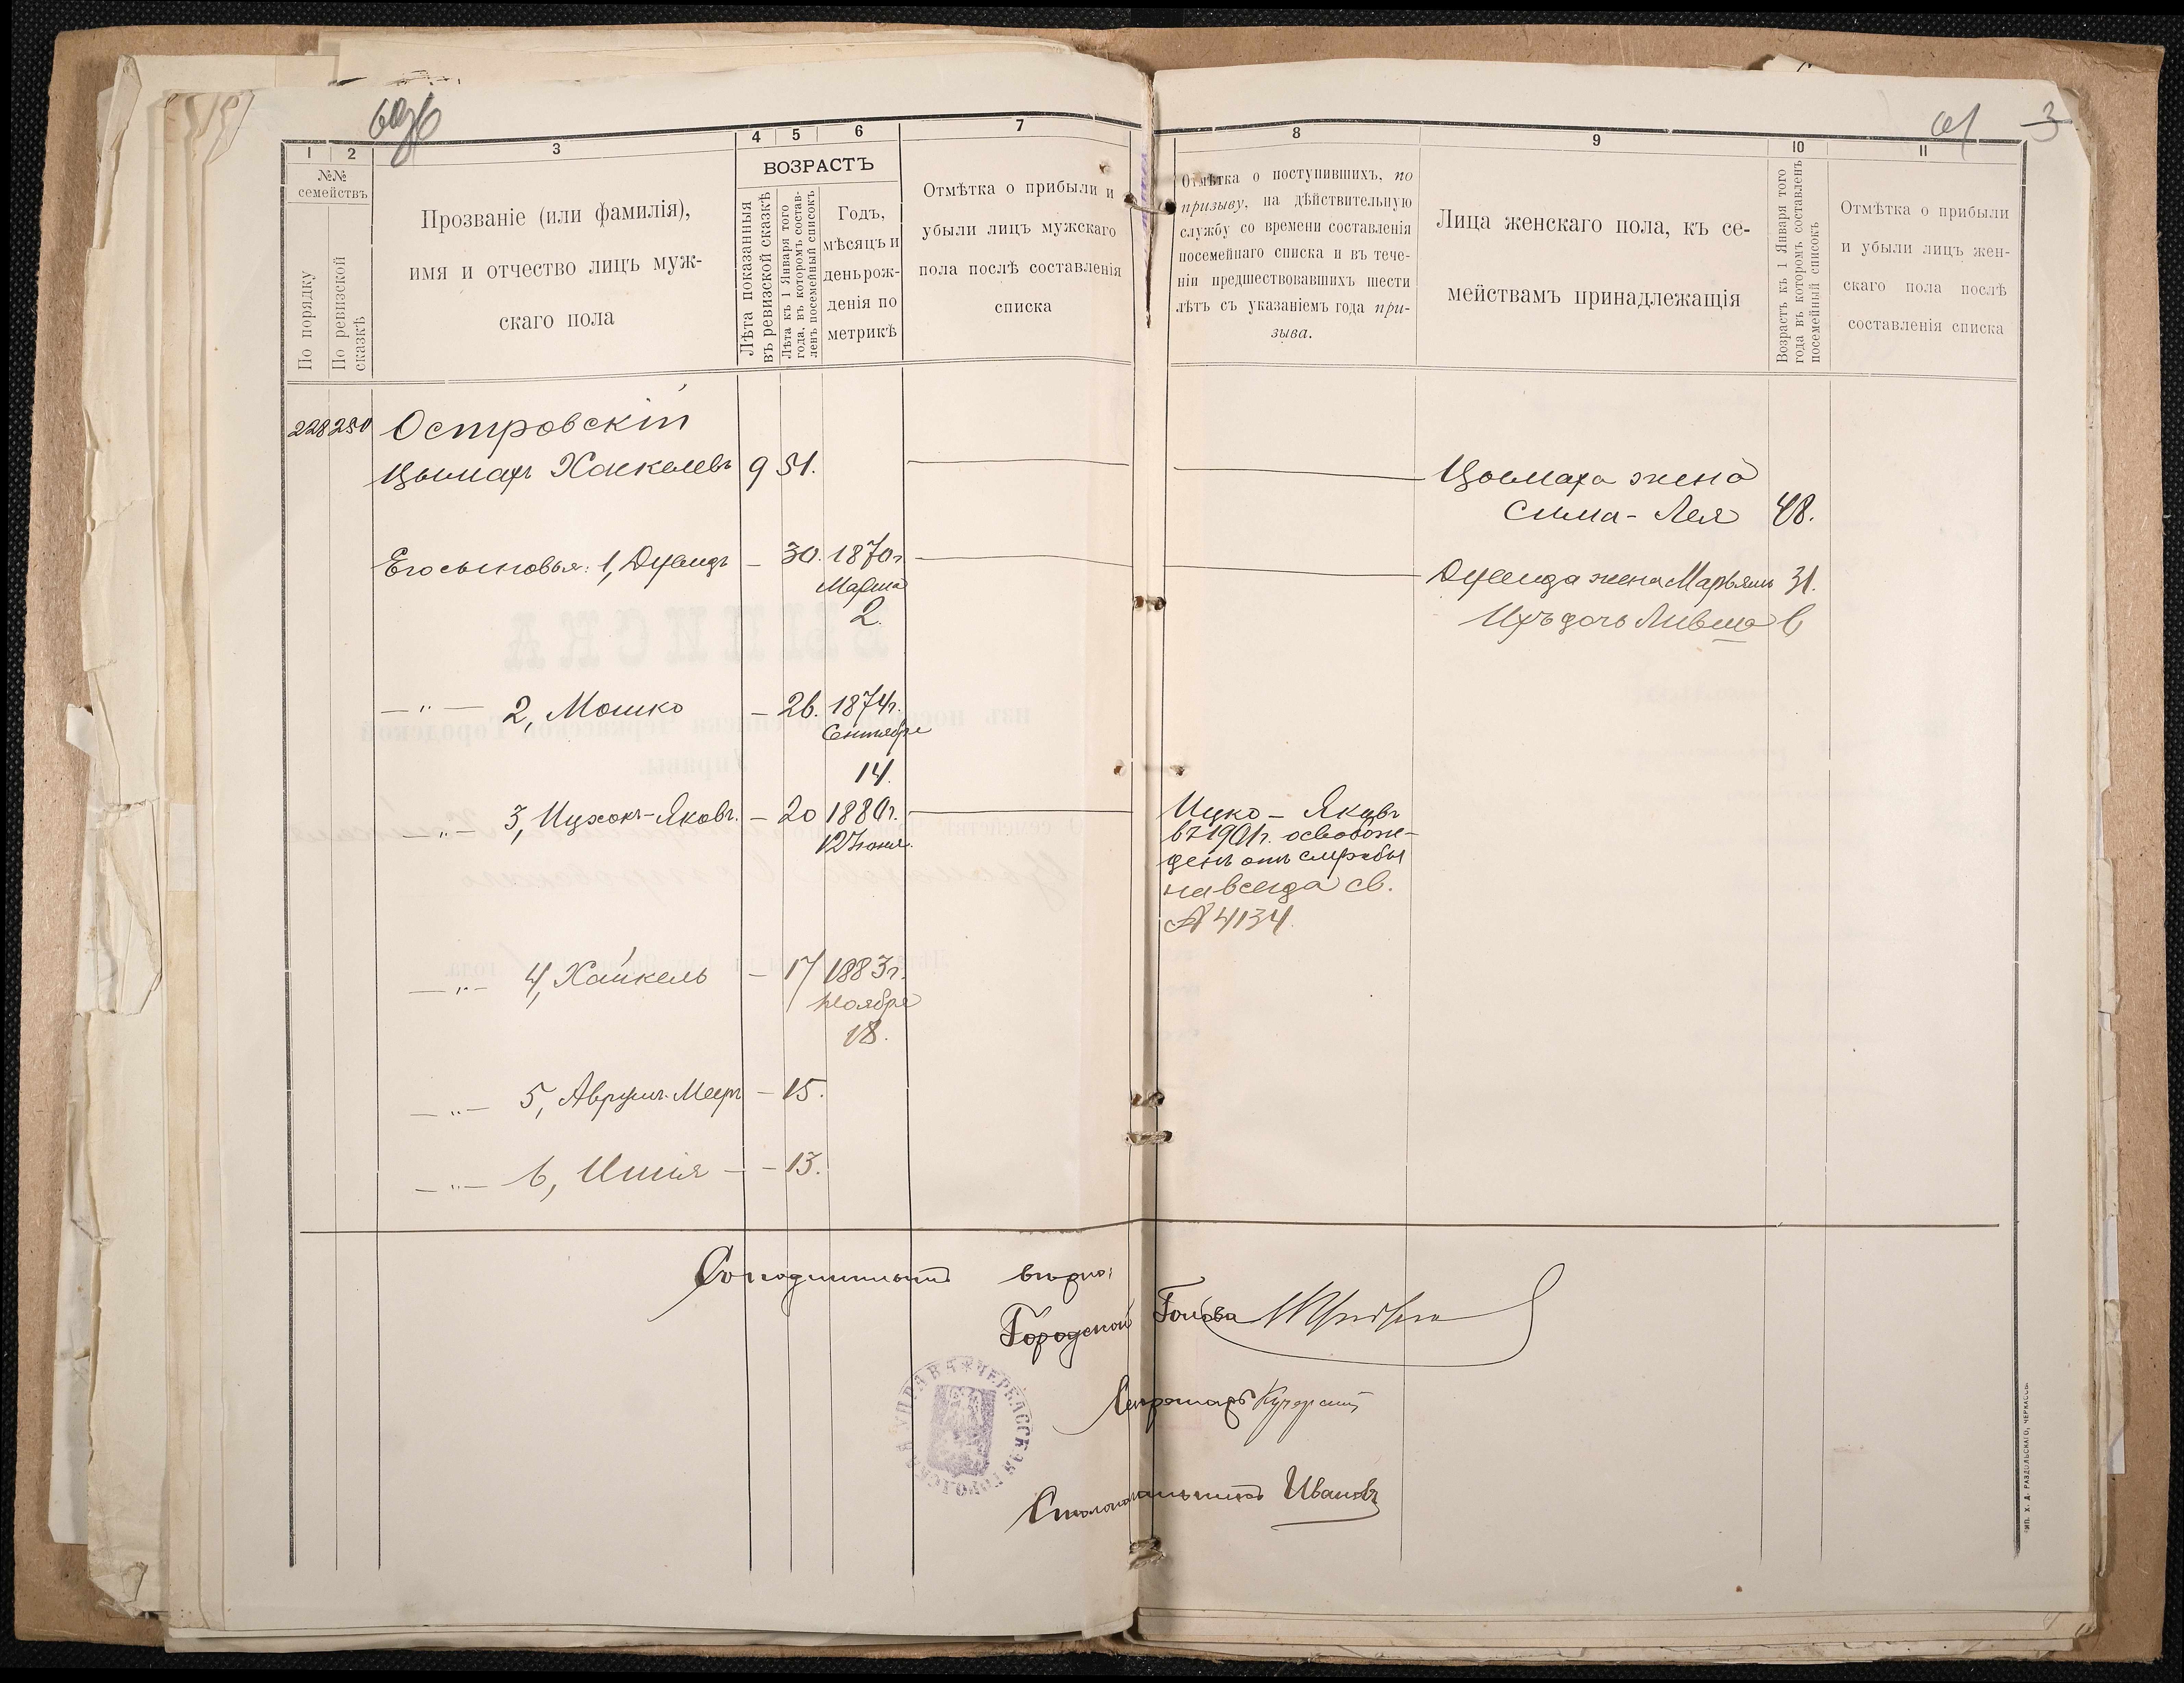 3
1
2
3
4
5
6
7
№№
семействъ
По порядку
По ревизской
сказкѣ
Прозваніе (или фамилія),
имя и отчество лицъ муж-
скаго пола
ВОЗРАСТЪ
Лѣта показанныя
въ ревизской сказкѣ
Лѣта къ 1 Января того
года, въ которомъ состав-
ленъ посемейный списокъ
Годъ,
мѣсяцъ и
день рож-
денія по
метрикѣ
Отмѣтка о прибыли и
убыли лицъ мужскаго
пола послѣ составленія
списка
8
9
10
11
Отмѣтка о поступившихъ, по
призыву, на дѣйствительную
службу со времени составленія
посемейнаго списка и въ тече-
ніи предшествовавшихъ шести
лѣтъ съ указаніемъ года при-
зыва.
Лица женскаго пола, къ се-
мействамъ принадлежащія
Возрастъ къ 1 Января того
года въ которомъ составленъ
посемейный списокъ
Отмѣтка о прибыли
и убыли лицъ жен-
скаго пола послѣ
составленія списка
228 250 Островскій
Цымахъ Хаскелевъ 9 51.
Цымаха жена
Сима-Лея 48.
Его сыновья: 1, Дувидъ — 30. 1870 г.
Марта
2.
Дувида жена Марьямъ 31.
Ихъ дочь Ливша 6
—„— 2, Мошко — 26. 1874 г.
Сентября
14.
—„— 3, Ицхокъ-Яковъ. — 20 1880 г.
12 Іюня.
Ицко — Яковъ
въ 1901 г. освобож-
денъ отъ службы
навсегда св.
№ 4134.
—„— 4, Хайкель — 17 1883 г.
Ноября
18.
—„— 5, Аврумъ-Меер — 15.
—„— 6, Ишія — — 13.
Съ подлиннымъ вѣрно:
Городской Голова
Секретарь Кучерскій
Столоначальникъ Ивановъ
ЧЕРКАССКАЯ ГОРОДСКАЯ УПРАВА
ТИП. Х. Д. РАЗДОЛЬСКАГО, ЧЕРКАССЫ.